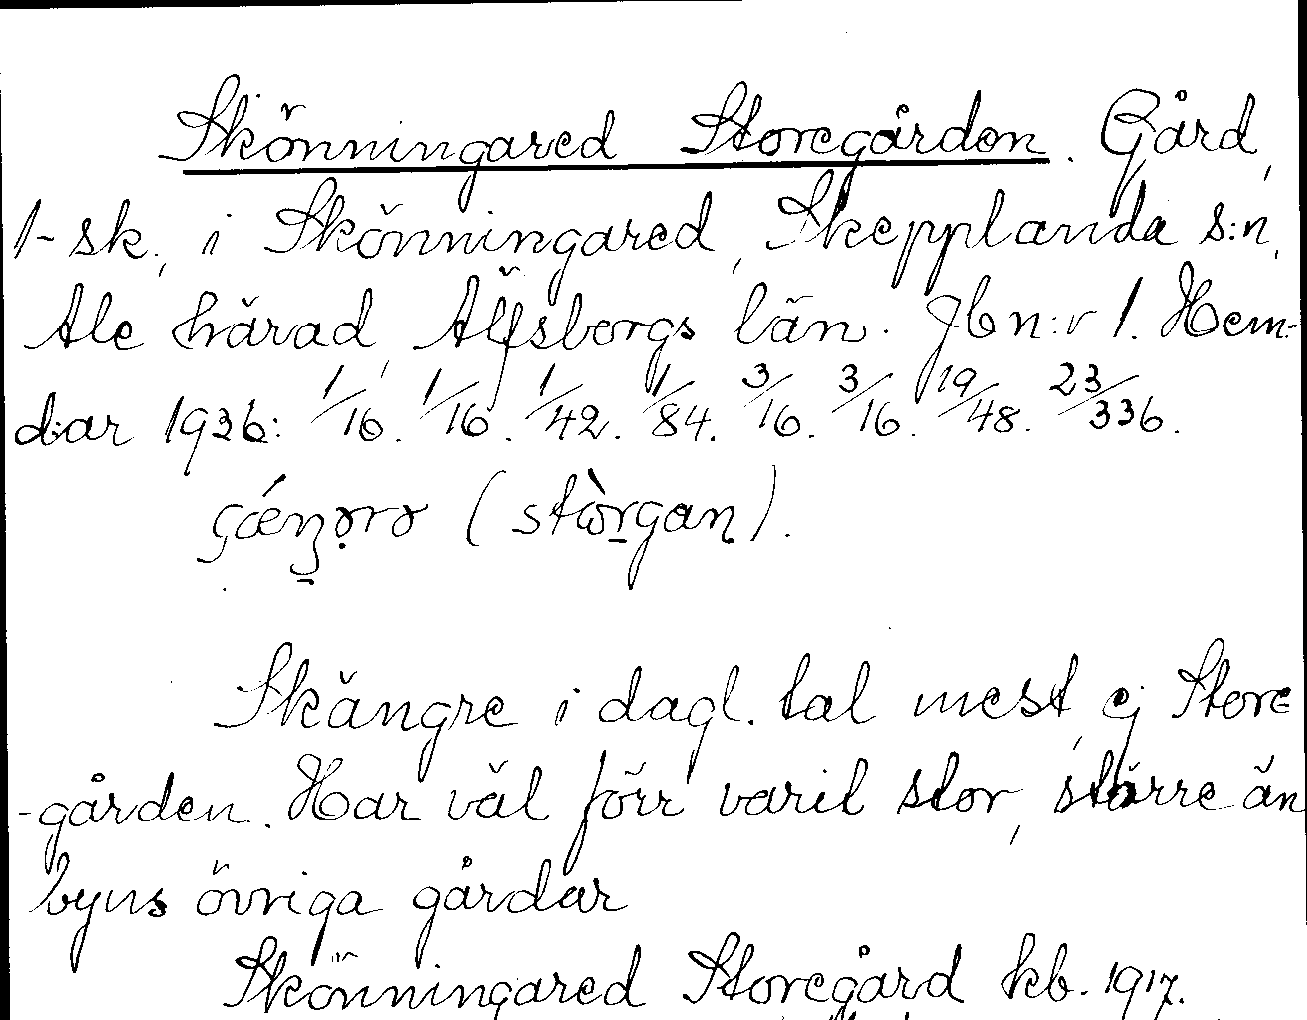 Skönningared Storegården. Gård,
1-sk., i Skönningared, Skepplanda s:n,
Ale härad, Älfsborgs län. Jbn:r 1. Hem-
d:ar 1936: 1/16. 1/16. 1/42. 1/84. 3/16. 3/16. 19/48. 23/336.
(stòrgan).
Skängre i dagl. tal mest, ej Store
-gården. Har väl förr varit stor, större än
byns övriga gårdar
Skönningared Storegård kb. 1917.